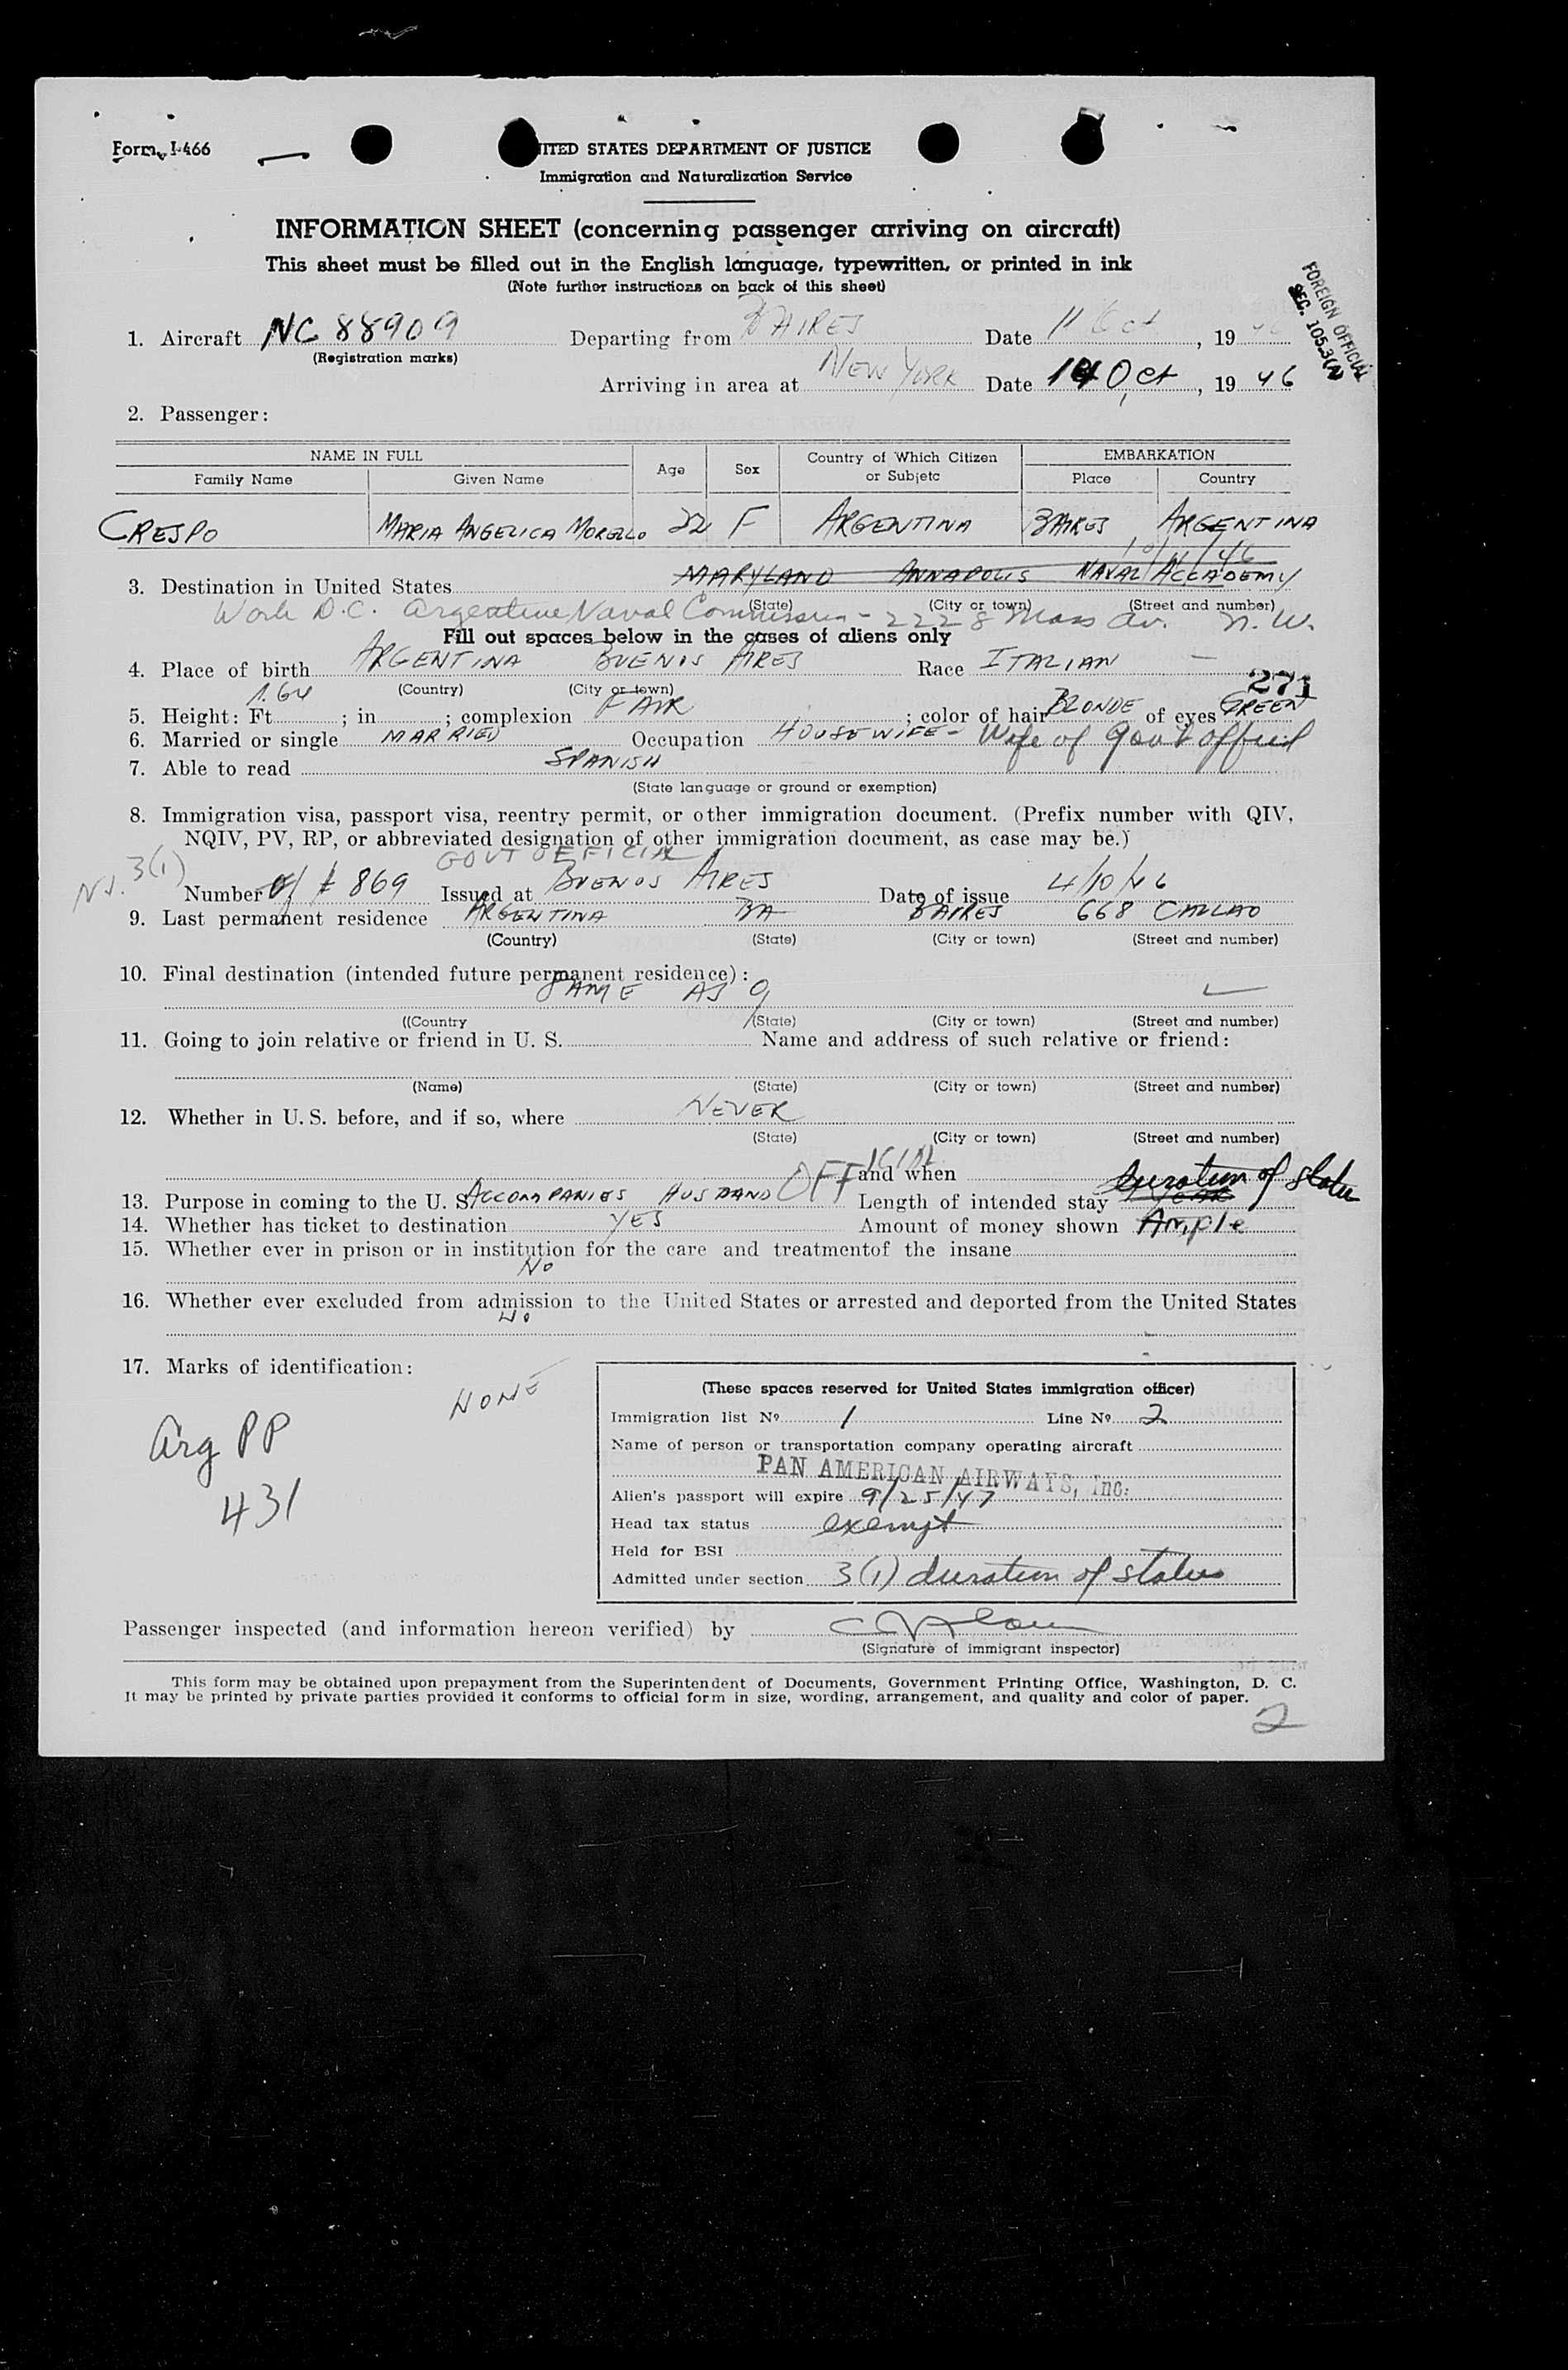 Form I-466
ITED STATES DEPARTMENT OF JUSTICE
Immigration and Naturalization Service
INFORMATION SHEET (concerning passenger arriving on aircraft)
This sheet must be filled out in the English language, typewritten, or printed in ink
(Note further instructions on back of this sheet)
FOREIGN OFFICIAL
SEC. 105.3(A)
1. Aircraft NC 88909 Departing from BAIRES Date 11 Oct, 19
(Registration marks)
Arriving in area at NEW YORK Date 14 Oct, 19 46
2. Passenger:
NAME IN FULL Age Sex Country of Which Citizen or Subjetc EMBARKATION
Family Name Given Name Place Country
CRESPO MARIA ANGELICA MORELLO 22 F ARGENTINA BAIRES ARGENTINA
10/11/46
3. Destination in United States MARYLAND ANNAPOLIS NAVAL ACCADEMY
(State) (City or town) (Street and number)
Wash D.C. Argentine Naval Commission - 2228 Mass Av. N.W.
Fill out spaces below in the cases of aliens only
4. Place of birth ARGENTINA BUENOS AIRES Race ITALIAN -
(Country) (City or town)
271
5. Height: Ft. 1.64; in; complexion FAIR; color of hair BLONDE of eyes GREEN
6. Married or single MARRIED Occupation HOUSEWIFE - Wife of Govt official
7. Able to read SPANISH
(State language or ground or exemption)
8. Immigration visa, passport visa, reentry permit, or other immigration document. (Prefix number with QIV,
NQIV, PV, RP, or abbreviated designation of other immigration document, as case may be.)
3(1) GOVT OFFICIAL
Number # 869 Issued at BUENOS AIRES Date of issue 4/10/46
9. Last permanent residence ARGENTINA BA BAIRES 668 CALLAO
(Country) (State) (City or town) (Street and number)
10. Final destination (intended future permanent residence):
SAME AS 9
((Country (State) (City or town) (Street and number)
11. Going to join relative or friend in U. S. Name and address of such relative or friend:
(Name) (State) (City or town) (Street and number)
12. Whether in U. S. before, and if so, where NEVER
(State) (City or town) (Street and number)
and when
13. Purpose in coming to the U. S. ACCOMPANIES HUSBAND OFFICIAL Length of intended stay YEAR duration of status
14. Whether has ticket to destination YES Amount of money shown Ample
15. Whether ever in prison or in institution for the care and treatmentof the insane
No
16. Whether ever excluded from admission to the United States or arrested and deported from the United States
No
17. Marks of identification:
NONE
Arg PP
431
(These spaces reserved for United States immigration officer)
Immigration list No 1 Line No 2
Name of person or transportation company operating aircraft
PAN AMERICAN AIRWAYS, Inc.
Alien's passport will expire 9/25/47
Head tax status exempt
Held for BSI
Admitted under section 3(1) duration of status
Passenger inspected (and information hereon verified) by
(Signature of immigrant inspector)
This form may be obtained upon prepayment from the Superintendent of Documents, Government Printing Office, Washington, D. C.
It may be printed by private parties provided it conforms to official form in size, wording, arrangement, and quality and color of paper.
2